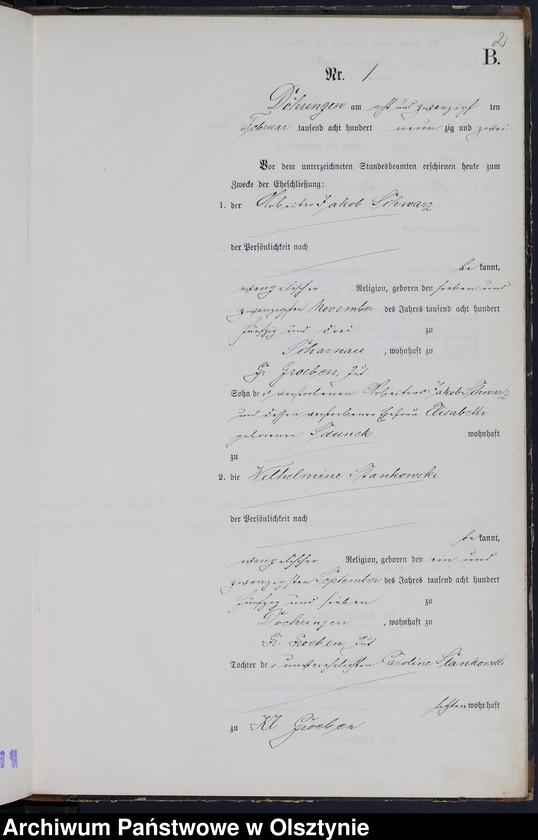 2
B.
Nr. 1.
Döhringen am acht und zwanzigsten den
Februar tausend acht hundert neun zig und zwei
Vor dem unterzeichneten Standesbeamten erschienen heute zum
Zwecke der Eheschließung:
1. der Arbeiter Jakob Schwarz
der Persönlichkeit nach
be kannt,
evangelischer Religion, geboren den sieben und
zwanzigsten November des Jahres tausend acht hundert
fünfzig und drei zu
Scharnau, wohnhaft zu
Gr. Groeben, Gut
Sohn des verstorbenen Arbeiters Jakob Schwarz
und dessen verstorbener Ehefrau Elisabeth
geborener wohnhaft
zu
2. die Wilhelmine Stankowski
der Persönlichkeit nach
be kannt,
evangelischer Religion, geboren den ein und
zwanzigsten September des Jahres tausend acht hundert
fünfzig und sieben zu
Döhringen, wohnhaft zu
Gr. Groeben, Gut
Tochter der unverehelichten Caroline Stankowski
wohnhaft
zu Kl. Groeben
11
Archiwum Państwowe w Olsztynie